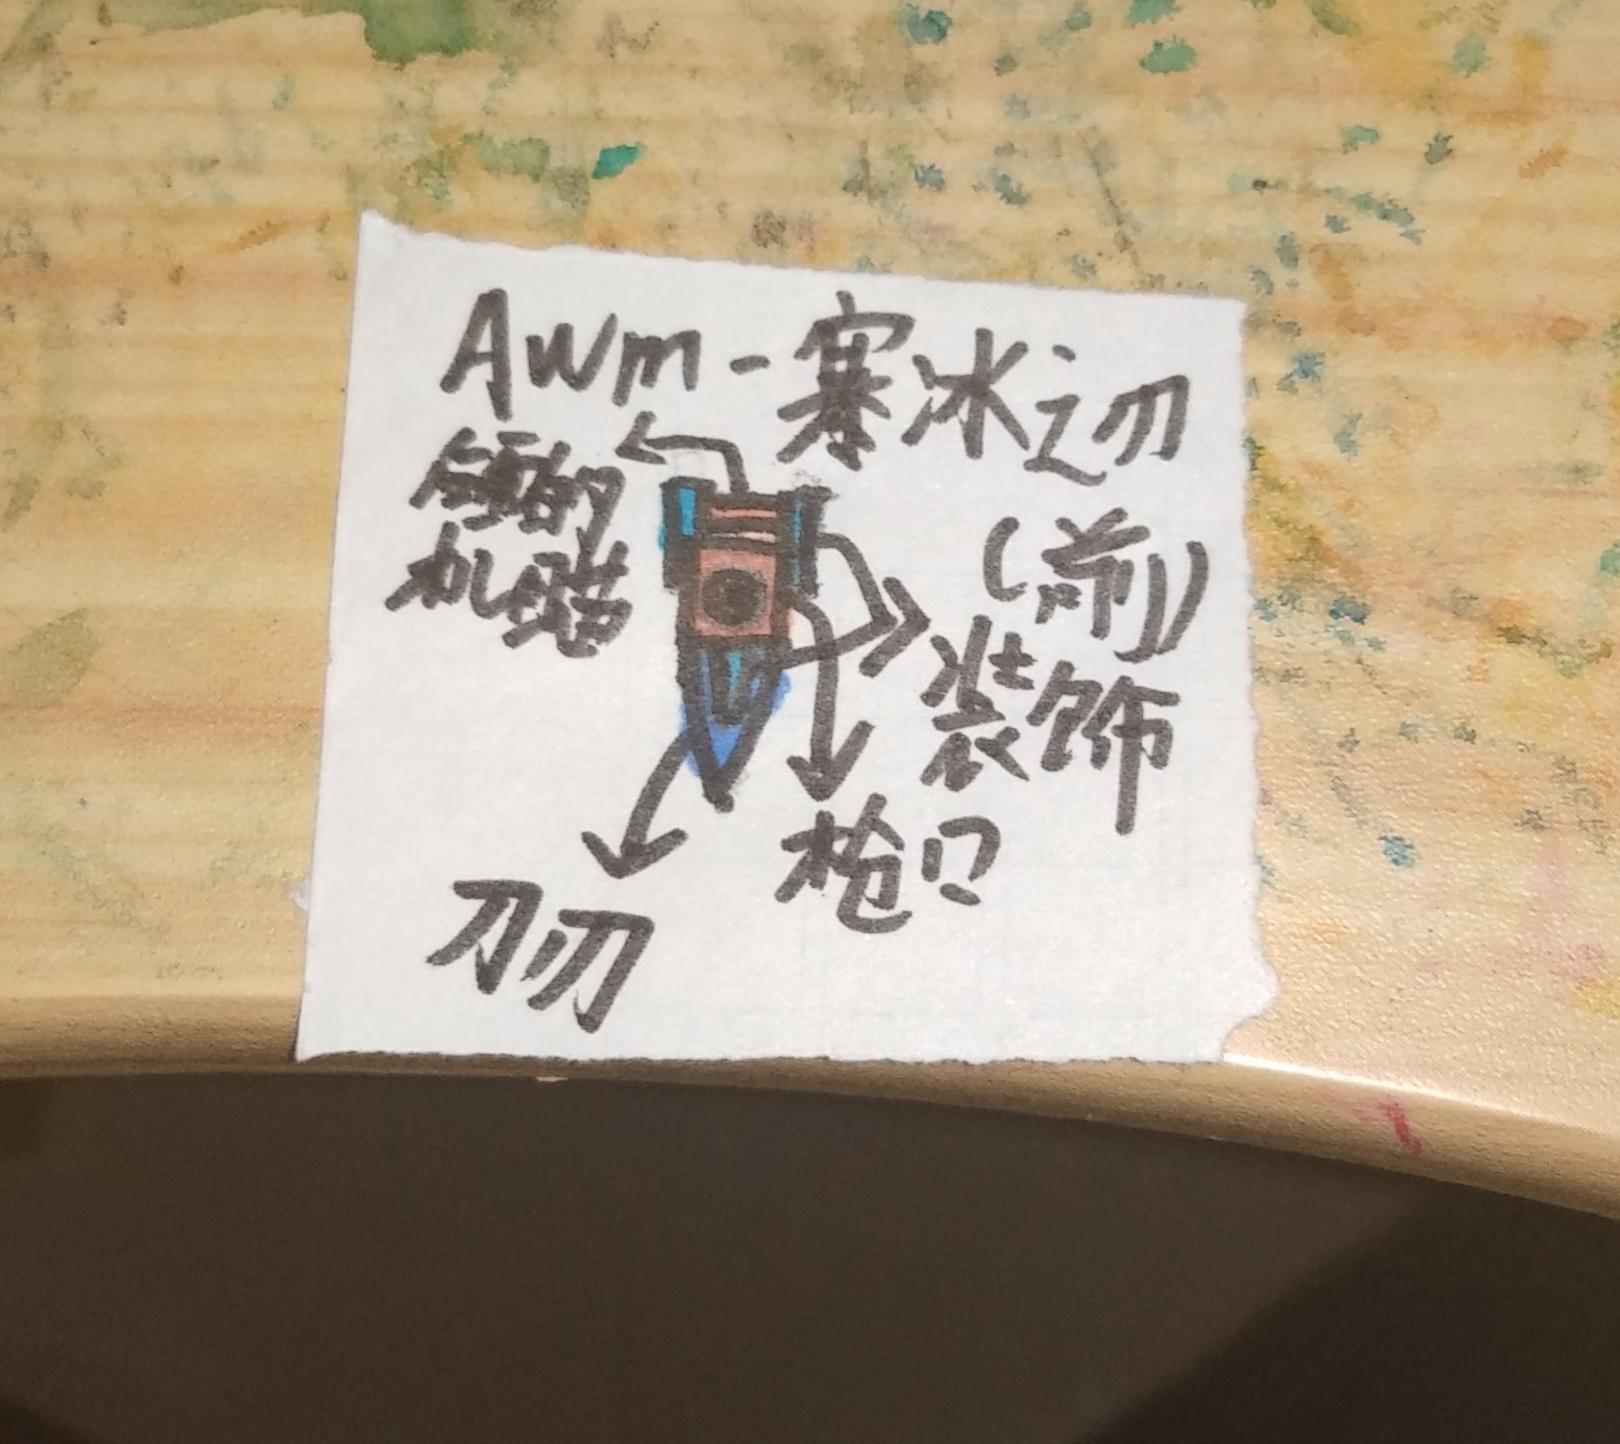 Awm-寒冰之刃
(前)
的
机瞄
装饰
枪口
刀刃